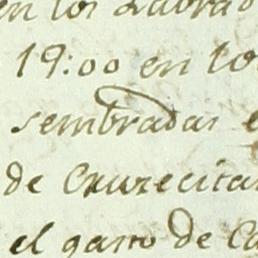 en los Labrado
19:00 en lo
sembradas e
de Cruzecitas
el gasto de Ca